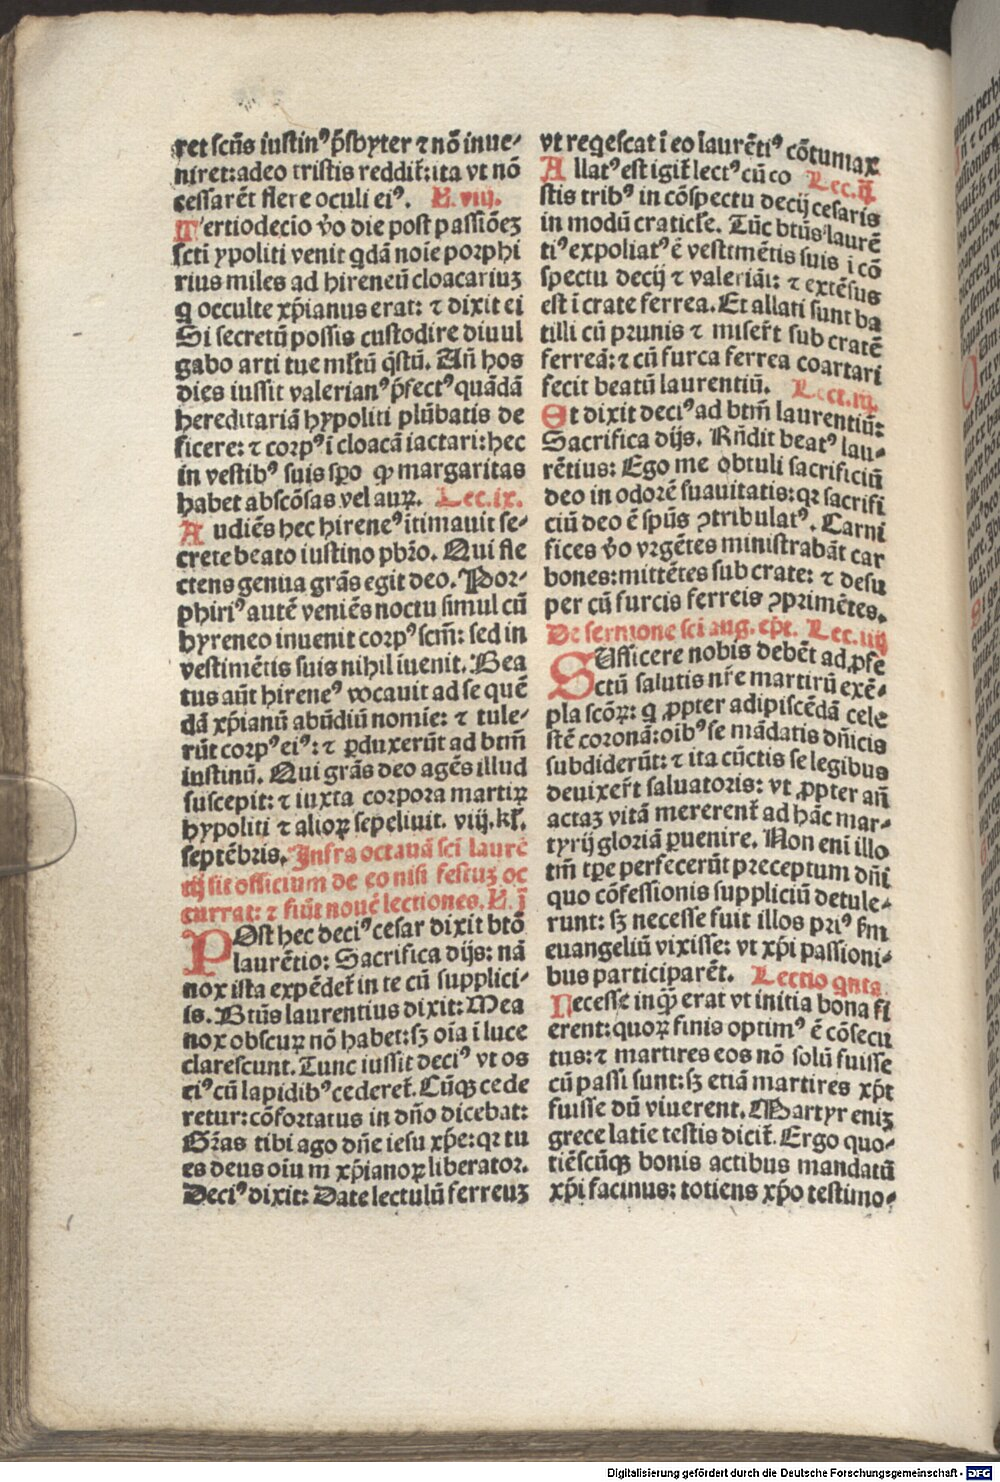 ret scūs iustinꝰ p̄sbyter ⁊ nō inue-
niret: adeo tristis reddit̄: ita vt nō
cessarēt flere oculi eiꝰ. L. viij.
Tertiodecio v̄o die post passiōeꝫ
scti ypoliti venit qdā noīe porphi
rius miles ad hireneū cloacariuꝫ
q occulte xp̄ianus erat: ⁊ dixit ei
Si secretū possis custodire diuul
gabo arti tue ml̄tū q̄stū. An̄ hos
dies iussit valerianꝰ p̄fectꝰ quādā
hereditariā hypoliti plūbatis de
ficere: ⁊ corpꝰ ī cloacā iactari: hec
in vestibꝰ suis sp̄o ꝙ margaritas
habet abscōsas vel auꝝ. Lec. ix.
Audiēs hec hireneꝰ itimauit se-
crete beato iustino pbr̄o. Qui fle
ctens genua grās egit deo. Por-
phiriꝰ autē veniēs noctu simul cū
hyreneo inuenit corpꝰ scm̄: sed in
vestimētis suis nihil iuenit. Bea
tus aūt hireneꝰ vocauit ad se quē
dā xp̄ianū abūdiū nomie: ⁊ tule-
rūt corpꝰ eiꝰ: ⁊ ꝑduxerūt ad btm̄
iustinū. Qui grās deo agēs illud
suscepit: ⁊ iuxta corpora martiꝝ
hypoliti ⁊ alioꝝ sepeliuit. viij. kl̄.
septēbris. Infra octauā sci laurē
tij sit officium de eo nisi festuꝫ oc
currat: ⁊ fiūt nouē lectiones. L. j
POst hec deciꝰ cesar dixit btō
laurētio: Sacrifica dijs: nā
nox ista expēdet̄ in te cū supplici-
is. Btūs laurentius dixit: Mea
nox obscuꝝ nō habet: sꝫ oīa ī luce
clarescunt. Tunc iussit deciꝰ vt os
eiꝰ cū lapidibꝰ cederet̄. Cūqꝫ cede
retur: cōfortatus in dn̄o dicebat:
Gr̄as tibi ago dn̄e iesu xp̄e: qꝛ tu
es deus oīu m xp̄ianoꝝ liberator.
Deciꝰ dixit: Date lectulū ferreuꝫ
vt reqescat ī eo laurētiꝰ cōtumax
Allatꝰ est igit̄ lectꝰ cū co Lec. ij
stis tribꝰ in cōspectu decij cesaris
in modū craticl̄e. Tūc btūs laurē
tiꝰ expoliatꝰ ē vestimētis suis ī cō
spectu decij ⁊ valeriāi: ⁊ extēsus
est ī crate ferrea. Et allati sunt ba
tilli cū prunis ⁊ miser̄t sub cratē
ferreā: ⁊ cū furca ferrea coartari
fecit beatū laurentiū. Lect. iij.
Et dixit deciꝰ ad btm̄ laurentiū:
Sacrifica dijs. Rn̄dit beatꝰ lau-
rētius: Ego me obtuli sacrificiū
deo in odorē suauitatis: qꝛ sacrifi
ciū deo ē spūs ꝯtribulatꝰ. Carni
fices v̄o vrgētes ministrabāt car
bones: mittētes sub crate: ⁊ desu
per cū furcis ferreis ꝯprimētes.
De sermone sci aug. ep̄i. Lec. iiij
SUfficere nobis debēt ad ꝓfe
ctū salutis nr̄e martirū exē-
pla scōꝝ: q ꝓpter adipiscēdā cele
stē coronā: oībꝰ se mādatis dn̄icis
subdiderūt: ⁊ ita cūctis se legibus
deuixer̄t saluatoris: vt ꝓpter an̄
actaꝫ vitā mererent̄ ad hāc mar-
tyrij gloriā ꝑuenire. Non eni illo
tm̄ tꝑe perfecerūt preceptum dn̄i
quo cōfessionis suppliciū detule-
runt: sꝫ necesse fuit illos priꝰ s̄m
euangeliū vixisse: vt xp̄i passioni-
bus participarēt. Lectio qnta
Necesse inqꝫ erat vt initia bona fi
erent: quoꝝ finis optimꝰ ē cōsecu
tus: ⁊ martires eos nō solū fuisse
cū passi sunt: sꝫ etiā martires xp̄i
fuisse dū viuerent. Martyr eniꝫ
grece latīe testis dicit̄. Ergo quo-
tiēscūqꝫ bonis actibus mandatū
xp̄i facinus: totiens xp̄o testimo-
Digitalisierung gefördert durch die Deutsche Forschungsgemeinschaft - DFG